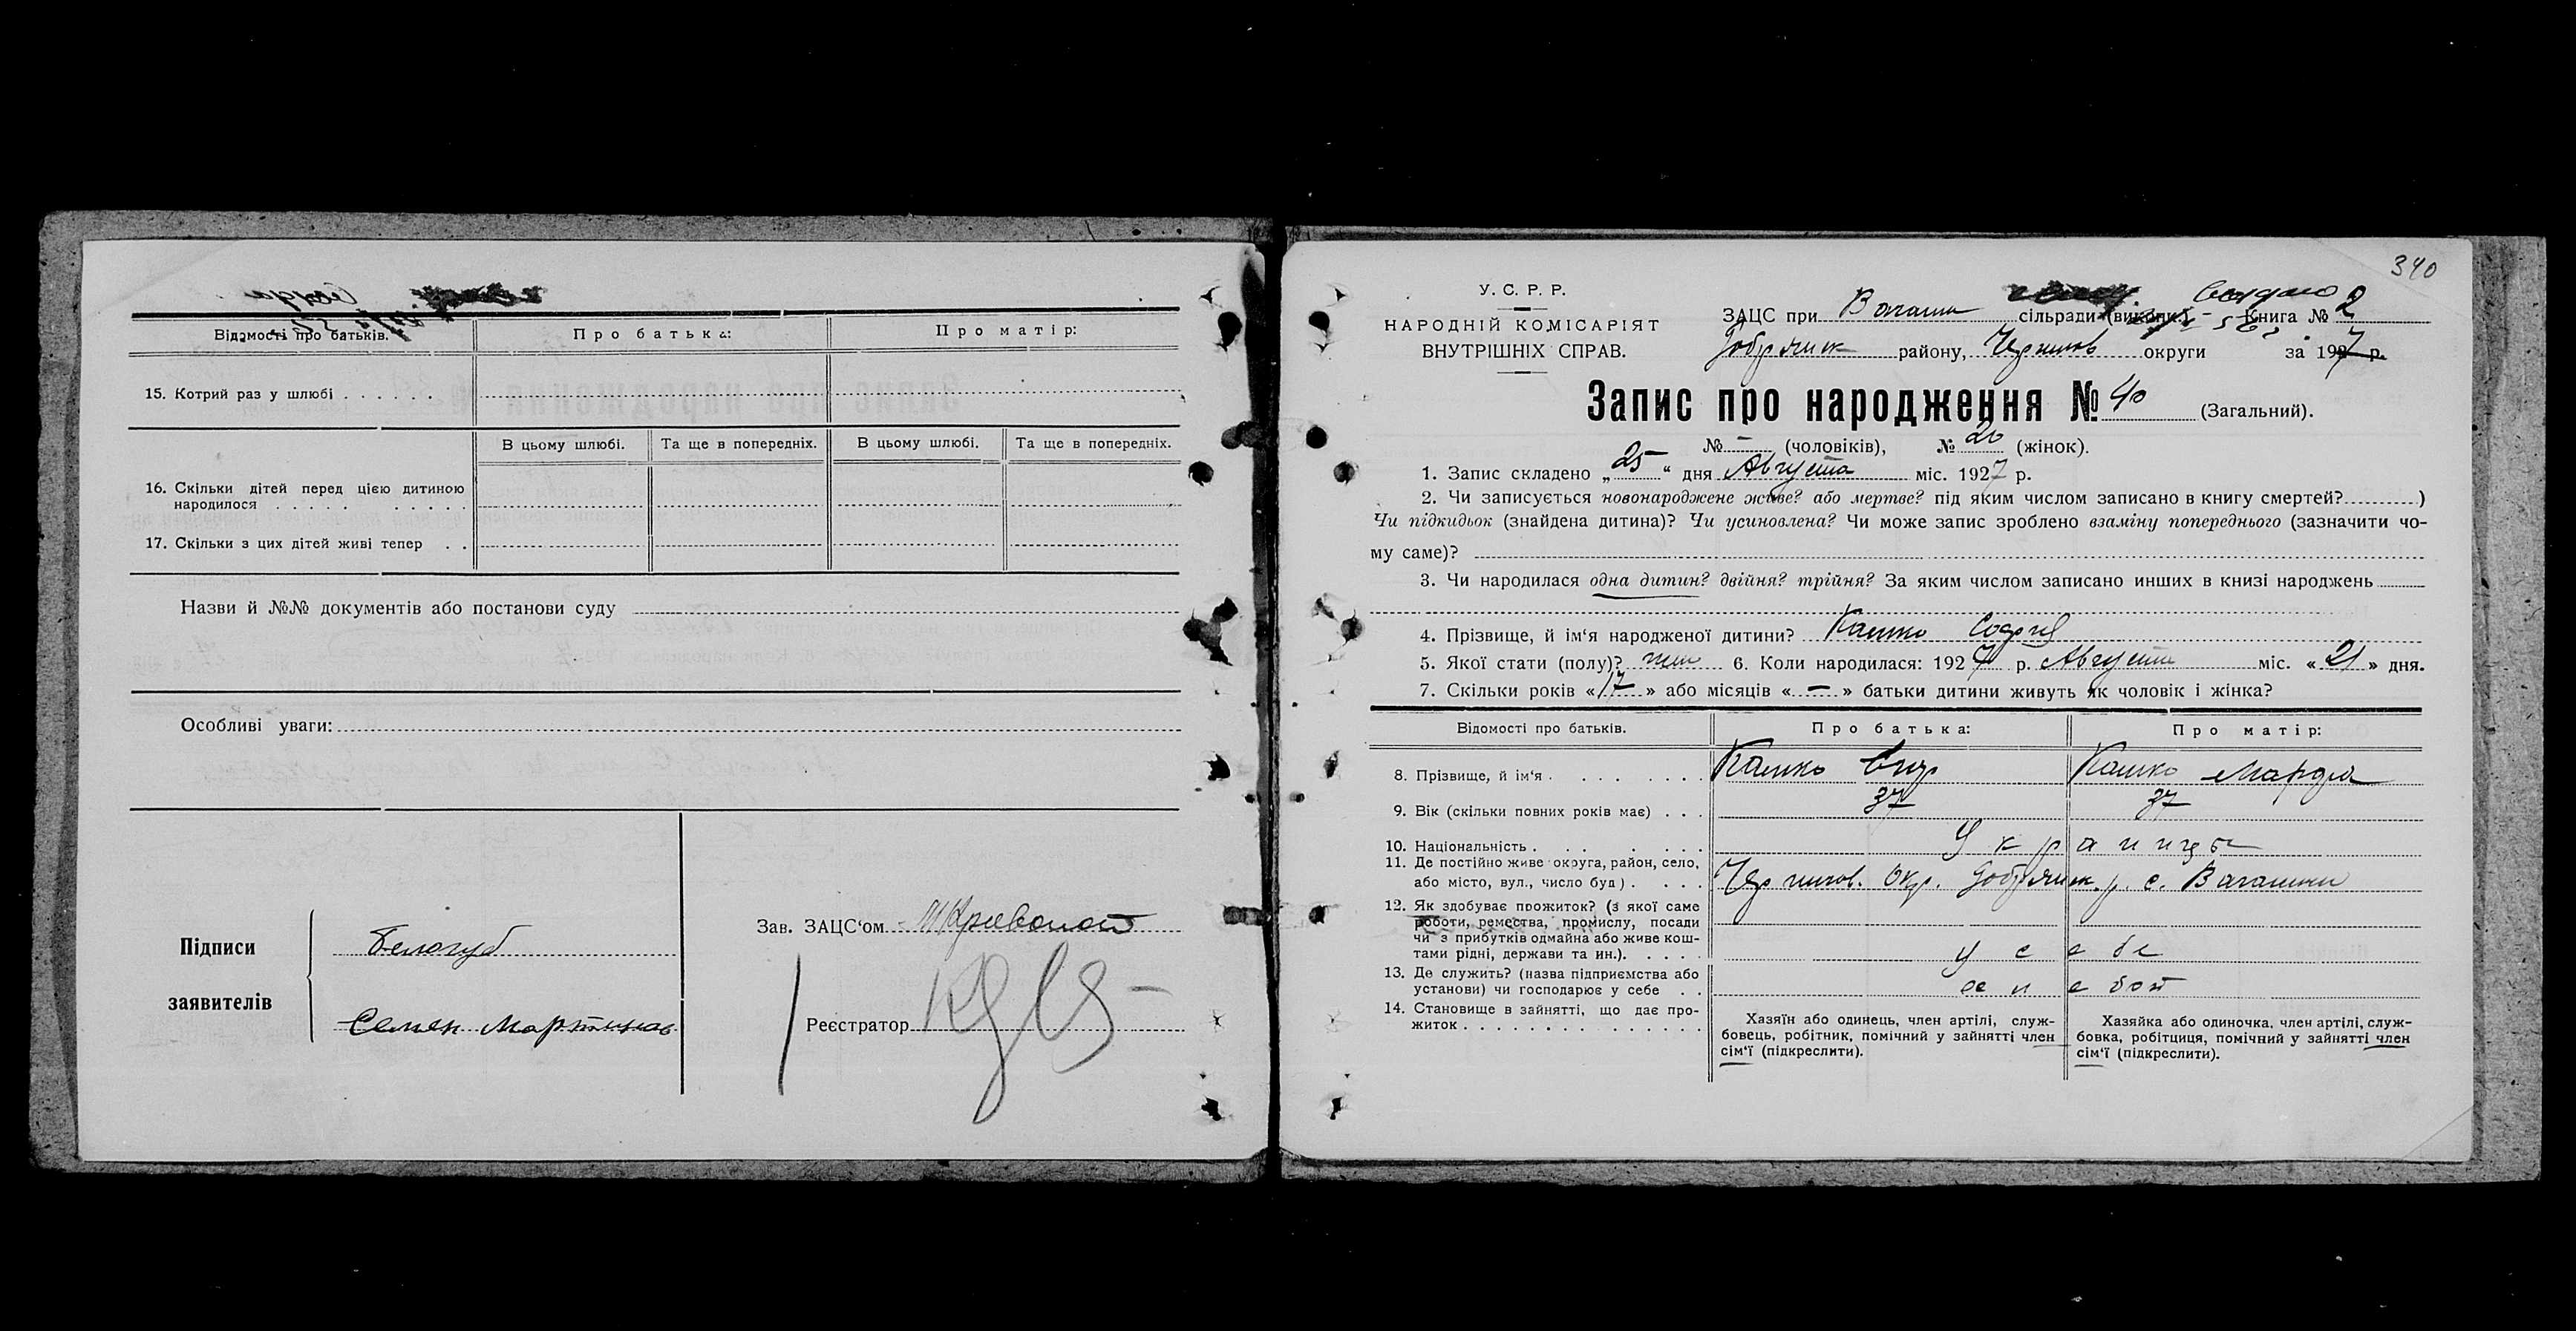 Відомості про батьків.
Про батька:
Про матір:
15. Котрий раз у шлюбі . . . . . .
В цьому шлюбі.
Та ще в попередніх.
В цьому шлюбі.
Та ще в попередніх.
16. Скільки дітей перед цією дитиною
народилося . . . . . . . . . .
17. Скільки з цих дітей живі тепер . .
Назви й №№ документів або постанови суду
Особливі уваги:
Підписи
заявителів
Белогуб
Семен
Зав. ЗАЦС‘ом
Реєстратор
340
У. С. Р. Р.
НАРОДНІЙ КОМІСАРІЯТ
ВНУТРІШНІХ СПРАВ.
ЗАЦС при сільради (викопк.) Книга № 2
Добрянск району, Чернигов округи за 1927 р.
Запис про народження № 40 (Загальний).
№ – (чоловіків), № 20 (жінок).
1. Запис складено „25“ дня Августа міс. 1927 р.
2. Чи записується новонароджене живе? або мертве? під яким числом записано в книгу смертей? )
Чи підкидьок (знайдена дитина)? Чи усиновлена? Чи може запис зроблено взаміну попереднього (зазначити чо-
му саме)?
3. Чи народилася одна дитин? двійня? трійня? За яким числом записано инших в книзі народжень
4. Прізвище, й ім‘я народженої дитини? Кашко София
5. Якої стати (полу)? жен 6. Коли народилася: 1927 р. Августа міс. «21» дня.
7. Скільки років «17» або місяців «–» батьки дитини живуть як чоловік і жінка?
Відомості про батьків.
Про батька:
Про матір:
8. Прізвище, й ім‘я . . . . . . Кашко Кашко Марфа
9. Вік (скільки повних років має) . . . 37 37
10. Національність . . . . . . Украинцы
11. Де постійно живе округа, район, село,
або місто, вул., число буд.) . . . . Чернигов. Окр. Добрянск. р. с.
12. Як здобуває прожиток? (з якої саме
роботи, ремества, промислу, посади
чи з прибутків одмайна або живе кош-
тами рідні, держави та ин.). . . . . у себе
13. Де служить? (назва підприємства або
установи) чи господарює у себе . .
14. Становище в зайнятті, що дає про-
житок . . . . . . . . . . . . . .
Хазяїн або одинець, член артілі, служ-
бовець, робітник, помічний у зайнятті член
сім‘ї (підкреслити).
Хазяйка або одиночка, член артілі, служ-
бовка, робітциця, помічний у зайнятті член
сім‘ї (підкреслити).